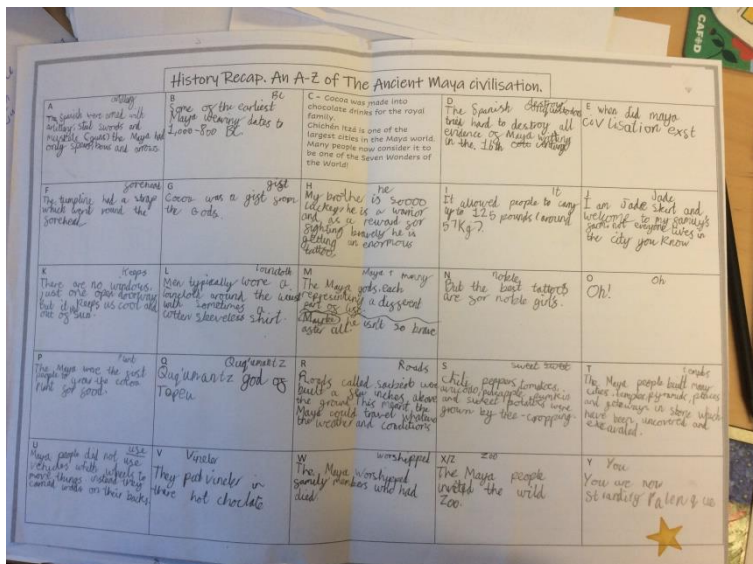 CAFOD
History Recap. An A-Z of The Ancient Maya civilisation.
A artillery
The Spanish were armed with
artillery, steel swords and
muskets (guns) the Maya had
only spears bows and arrows.
B BC
Some of the earliest
Maya weaving dates to
1,000-800 BC.
C - Cocoa was made into
chocolate drinks for the royal
family.
Chichén Itzá is one of the
largest cities in the Maya world.
Many people now consider it to
be one of the Seven Wonders of
the World!
D destroy
The Spanish conquistadors
tried hard to destroy all
evidence of Maya writing
in the 15th century
E when did maya
CivLisation exst
F forehead
The tumpline had a strap
which went round the
forehead.
G gift
Cocoa was a gift from
the Gods.
H he
My brother he is sooooo
lucky, he is a warrior
and as a reward for
fighting bravely he is
getting an enormous
tattoo.
I It
It allowed people to carry
up to 125 pounds (around
57kg).
J Jade
I am Jade Skirt and
welcome to my family's
farm not everyone lives in
the city you know
K Keeps
There are no windows,
just one open doorway
but it keeps us cool and
out of sun.
L loincloth
Men typically wore a
loincloth around the waist
with sometimes a
cotton sleeveless shirt.
M Maya & many
The Maya gods each
representing a different
part of life.
Maybe he isn't so brave
after all!
N noble
But the best tattoos
are for noble girls.
O Oh
Oh!
P Plant
The Maya were the first
people to grow the cocoa
plant for food.
Q Quq'umantz
Quq'umantz god of
Tepeu
R Roads
Roads called sacbeob were
built a few inches above
the ground. This meant the
Maya could travel whatever
the weather and conditions
S sweet
Chili peppers, tomatoes,
avocado, pineapple, pumpkin
and sweet potatoes were
grown by tree-cropping.
T temples
The Maya people built many
cities - temples, pyramids, palaces
and gateways in stone which
have been uncovered and
excavated.
U use
Maya people did not use
vehicles with wheels to
move things instead they
carried loads on their backs.
V Vineler
They put vineler in
there hot choclate
W worshipped
The Maya worshipped
family members who had
died.
X/Z Zoo
The Maya people
invited the wild
Zoo.
Y You
You are now
standing Palenque